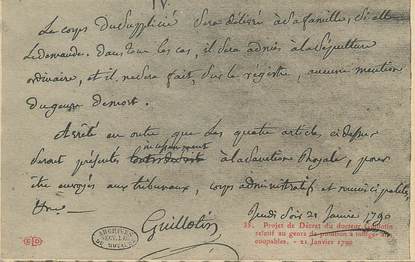 IV.
Le corps du Supplicié Sera délivré à Sa famille, Si elle
le demande. Dans tous les cas, il Sera admis à la Sépulture
ordinaire, et il ne Sera fait, Sur le régistre, aucune mention
du genre de mort.
Arrêté en outre que les quatre articles ci dessus
Seront présentés incessamment à la Sanction Royale, pour
être envoyés aux tribunaux, corps administratifs et municipalités,
Jeudi Soir 21 Janvier 1790
Guillotin
ARCHIVES
38. Projet de Décret du docteur Guillotin
relatif au genre de punition à infliger aux
coupables. - 21 Janvier 1790
ED